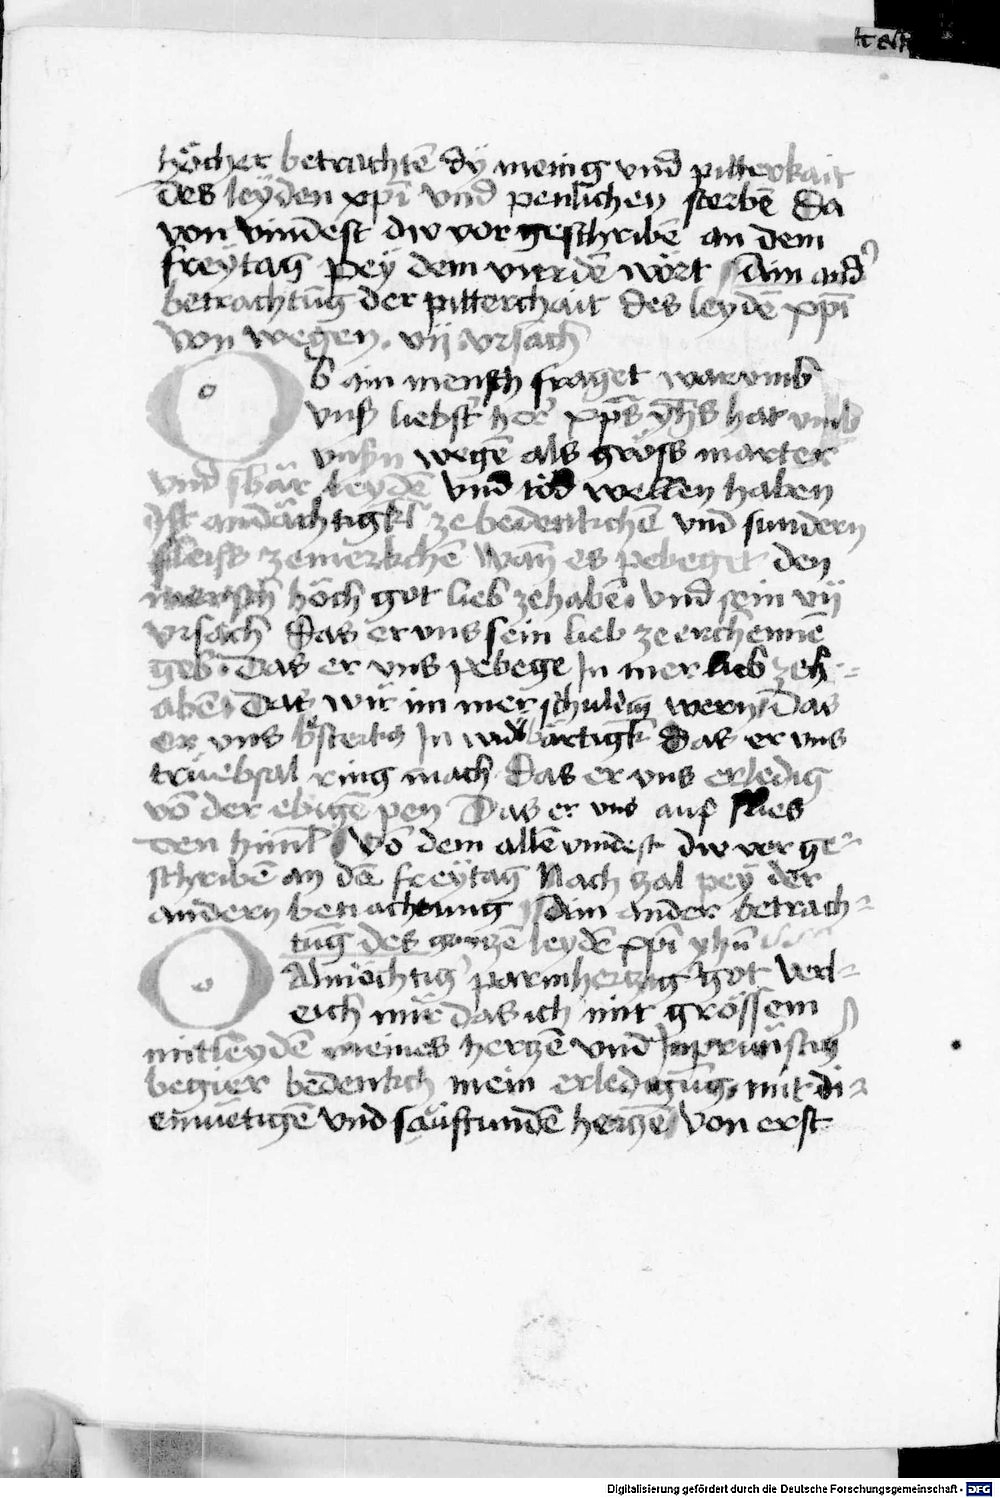 höcher betrachtē dÿ menig vnd pitterkait
des leÿden xp̄i vnd penlichen sterbē Da
von vindest dw vor geschribē an dem
freÿtag peÿ dem vierdē wört Ain and'
betrachtūg der pitterchait des leydē xp̄i
von wegen . vij vrsach
O b ain mensch fraget warvmb
vnser liebst' her' xp̄s yh̄s hat vmb
vnsern wegē als gröss marter
vnd sbär leydē vnd töd wellen haben
Ist andächtigkl' ze bedenkchē vnd sundern
fleiss ze merkchē wan̄ es pebeget den
mensch höch got lieb ze habē vnd sein vij
vrsach Das er vns sein lieb ze erchennē
geb . Das er vns pebege In mer lieb zeh
abē Das wir im mer schuldig wern Das
er vns bsterkh In widbärtigk Das er vns
trüebsal ring mach Das er vns erledig
vō der ebigē pen Das er vns auf slies
den himl Vō dem allē vindest dw vor ge
schribē an dē freÿtag Nach zal peÿ der
andern betrachtung Ain ander betrach
tūg des gantzē leydē xp̄i yhū
O Almöchtig' parmhertzig' got verl
eich mir das ich mit grössem
mitleydē meines hertzē vnd Inprünstig'
begier bedenkch mein erledigūg, mit di
emüetigē vnd säuftundē hertzē von erst
Digitalisierung gefördert durch die Deutsche Forschungsgemeinschaft - DFG